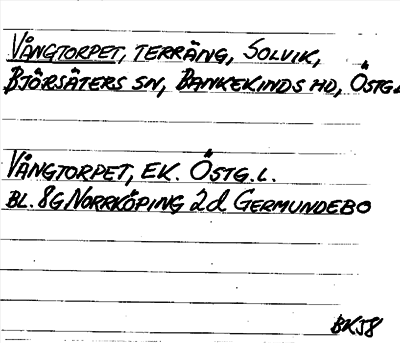 VÅNGTORPET, TERRÄNG, SOLVIK,
BJÖRSÄTERS SN, BANKEKINDS HD, ÖSTG.L
VÅNGTORPET, EK. ÖSTG.L.
BL. 8G NORRKÖPING 2d GERMUNDEBO
BK58